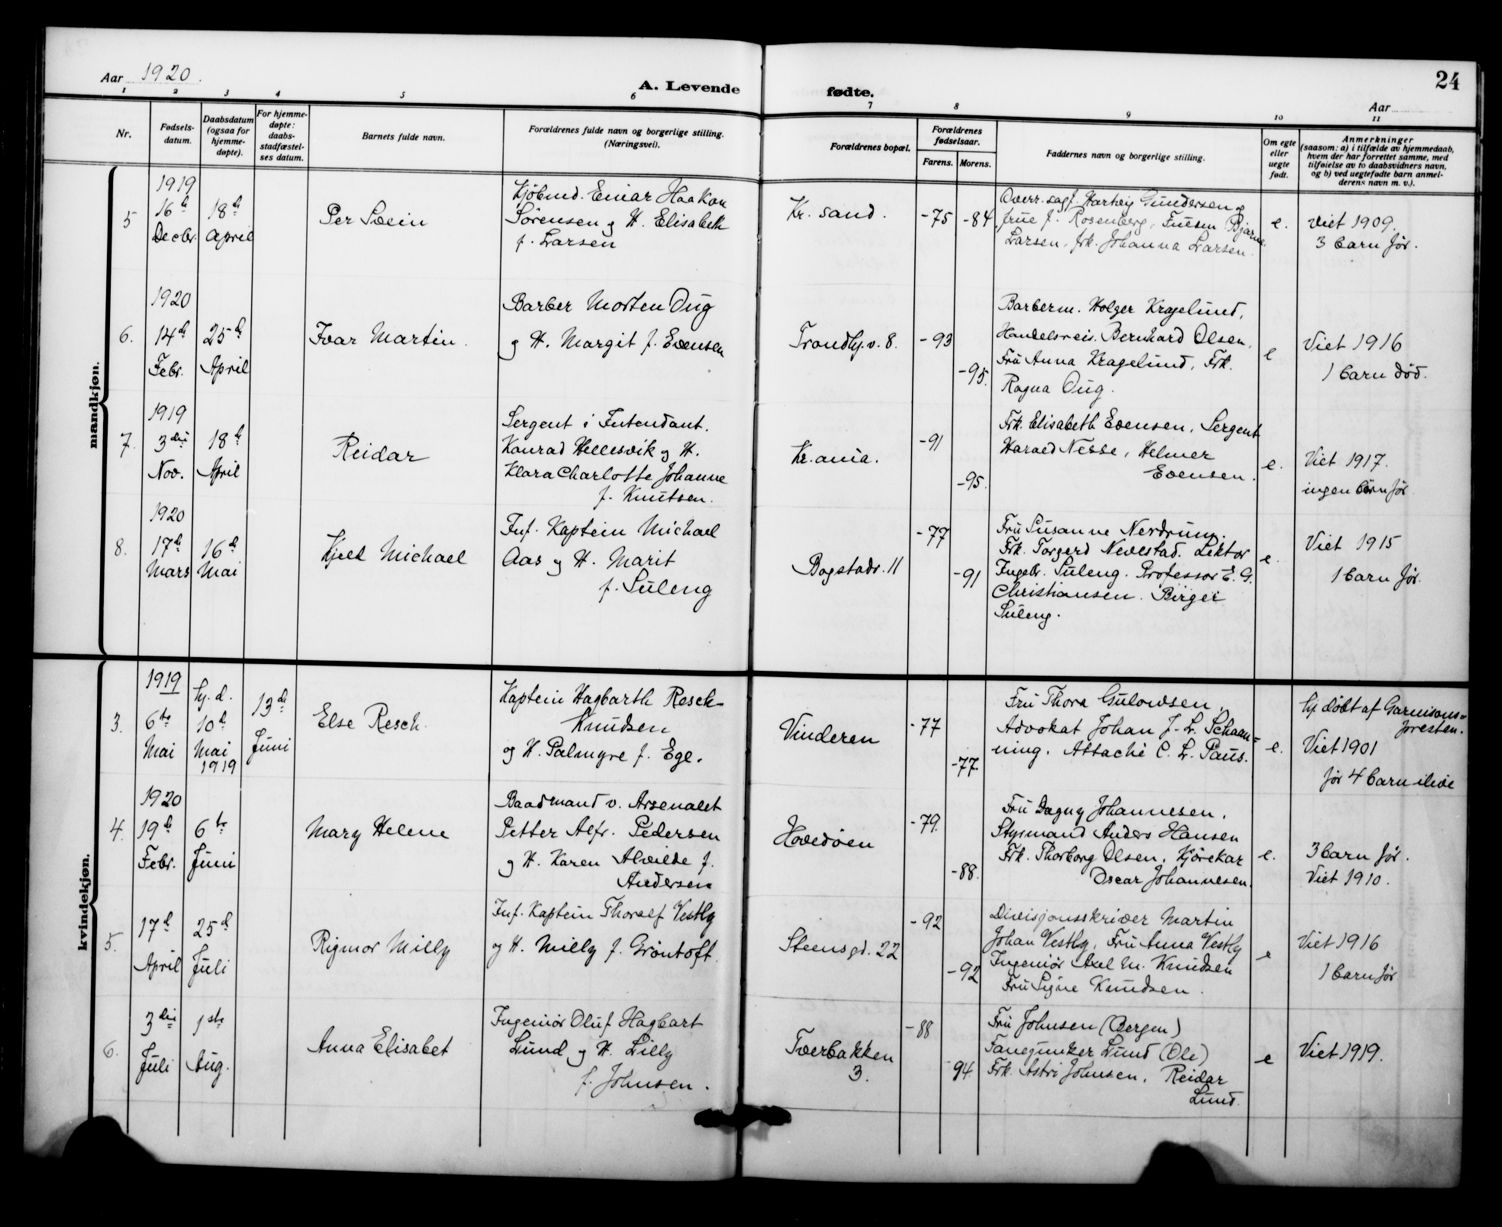 Aar 1920.
A. Levende fødte.
24
Aar
1 2 3 4 5 6 7 8 9 10 11
Nr.
Fødsels-
datum.
Daabsdatum
(ogsaa for
hjemme-
døpte).
For hjemme-
døpte:
daabs-
stadfæstel-
ses datum.
Barnets fulde navn.
Forældrenes fulde navn og borgerlige stilling.
(Næringsvei).
Forældrenes bopæl.
Forældrenes
fødselsaar.
Farens. Morens.
Faddernes navn og borgerlige stilling.
Om egte
eller
uegte
født.
Anmerkninger
(saasom: a) i tilfælde av hjemmedaab,
hvem der har forrettet samme, med
tilføielse av to daabsvidners navn,
og b) ved uegtefødte barn anmel-
derens navn m. v.).
mandkjøn.
5
1919
16de
Decbr.
18de
April
Per Svein
Kjøbmd. Einar Haakon
Sørensen og H. Elisabeth
f. Larsen
Kr. sand.
-75
-84
Overr. sagf. Hartvig Gundersen og
frue f. Rosenberg, Bjarne
Larsen, frk. Johanna Larsen.
e.
Viet 1909.
3 barn før.
6.
1920
14de
Febr.
25de
April
Ivar Martin.
Barber Morten Oug
og H. Margit f. Evensen
Trondhj.v. 8.
-93
-95.
Barberm. Holger Kragelund,
Handelsreis. Bernhard Olsen,
Fru Anna Kragelund, Frk.
Ragna Oug.
e
Viet 1916
1 barn død.
7.
1919
3die
Nov.
18de
April
Reidar
Sergent i Intendant.
Konrad Hellesvik og H.
Klara Charlotte Johanne
f. Knutsen.
Kr.ania.
-91
-95.
Frk. Elisabeth Evensen, Sergent
Harald Nesse, Helmer
Evensen.
e.
Viet 1917.
ingen børn før.
8.
1920
17de
Mars
16de
Mai
Kjell Michael
Inf. Kaptein Michael
Aas og H. Marit
f. Suleng
Bogstadv. 11
-77
-91
Fru Susanne Nerdrum,
Frk. Torgerd Nevestad. Lektor
Ingebr. Suleng. Professor E. G.
Christiansen. Birger
Suleng.
e.
Viet 1915
1 barn før.
kvindekjøn.
3.
1919
6te
Mai
hj. d.
10de
Mai
1919
13de
Juni
Else Resch.
Kaptein Hagbarth Resch-
Knudsen
og H. Palmyre f. Ege.
Vinderen
-77
-77
Fru Thora Gulowsen,
Advokat Johan f. L. Schaan=
ning. Attaché C. L. Paus.
e.
hj døbt af Garnisons=
presten.
Viet 1901
før 4 barn ilive
4.
1920
19de
Febr.
6te
Juni
Mary Helene
Baadmand v. Arsenalet
Petter Alfr. Pedersen
og H. Karen Alvilde f.
Andersen
Hovedøen
-79.
-88.
Fru Dagny Johannesen,
Styrmand Anders Hansen
Frk. Thorborg Olsen, Kjørekar
Oscar Johannesen.
e.
3 barn før.
Viet 1910.
5.
17de
April
25de
Juli
Rigmor Milly
Inf. Kaptein Thoralf Vestby
og H. Milly f. Grøntoft.
Steensgd. 22
-92
-92
Divisjonsskriver Martin
Johan Vestby, Fru Anna Vestby
Ingeniør Axel M. Knudsen
Fru Signe Knudsen.
e
Viet 1916
1 barn før
6.
3die
Juli
1ste
Aug.
Anna Elisabet
Ingeniør Oluf Hagbart
Lund og H. Lilly
f. Johnsen.
Tverbakken
3.
-88
94
Fru Johnsen (Bergen)
Fanejunker Lund (Ole)
Frk. Astri Johnsen, Reidar
Lund.
e
Viet 1919.